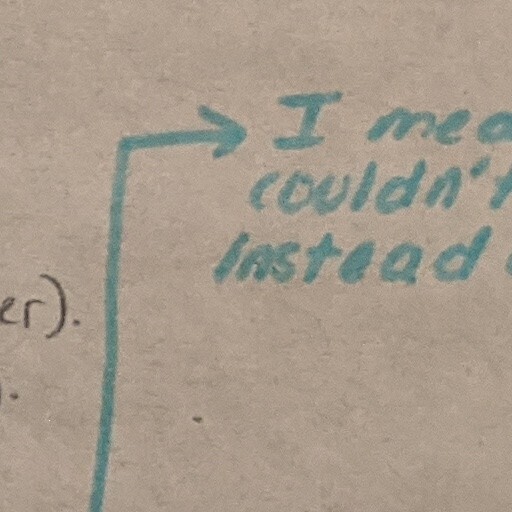 I mea
couldn't
instead
er).
).